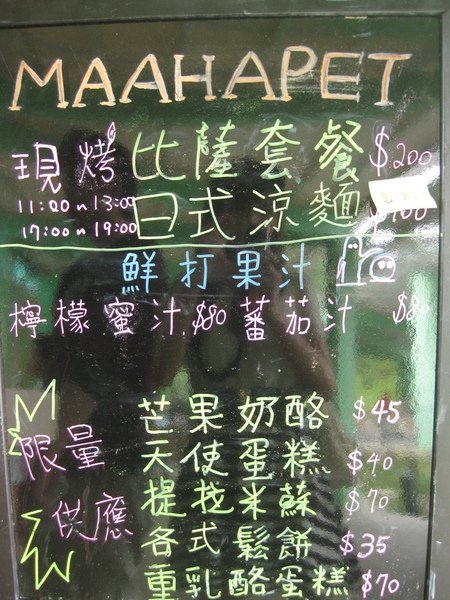 MAAHAPET
現烤 比薩套餐 $200
11:00~13:00 日式涼麵 $100
17:00~19:00
鮮打果汁
檸檬蜜汁 $80 蕃茄汁 $80
芒果奶酪 $45
限量 天使蛋糕 $40
提拉米蘇 $70
供應 各式鬆餅 $35
重乳酪蛋糕 $70